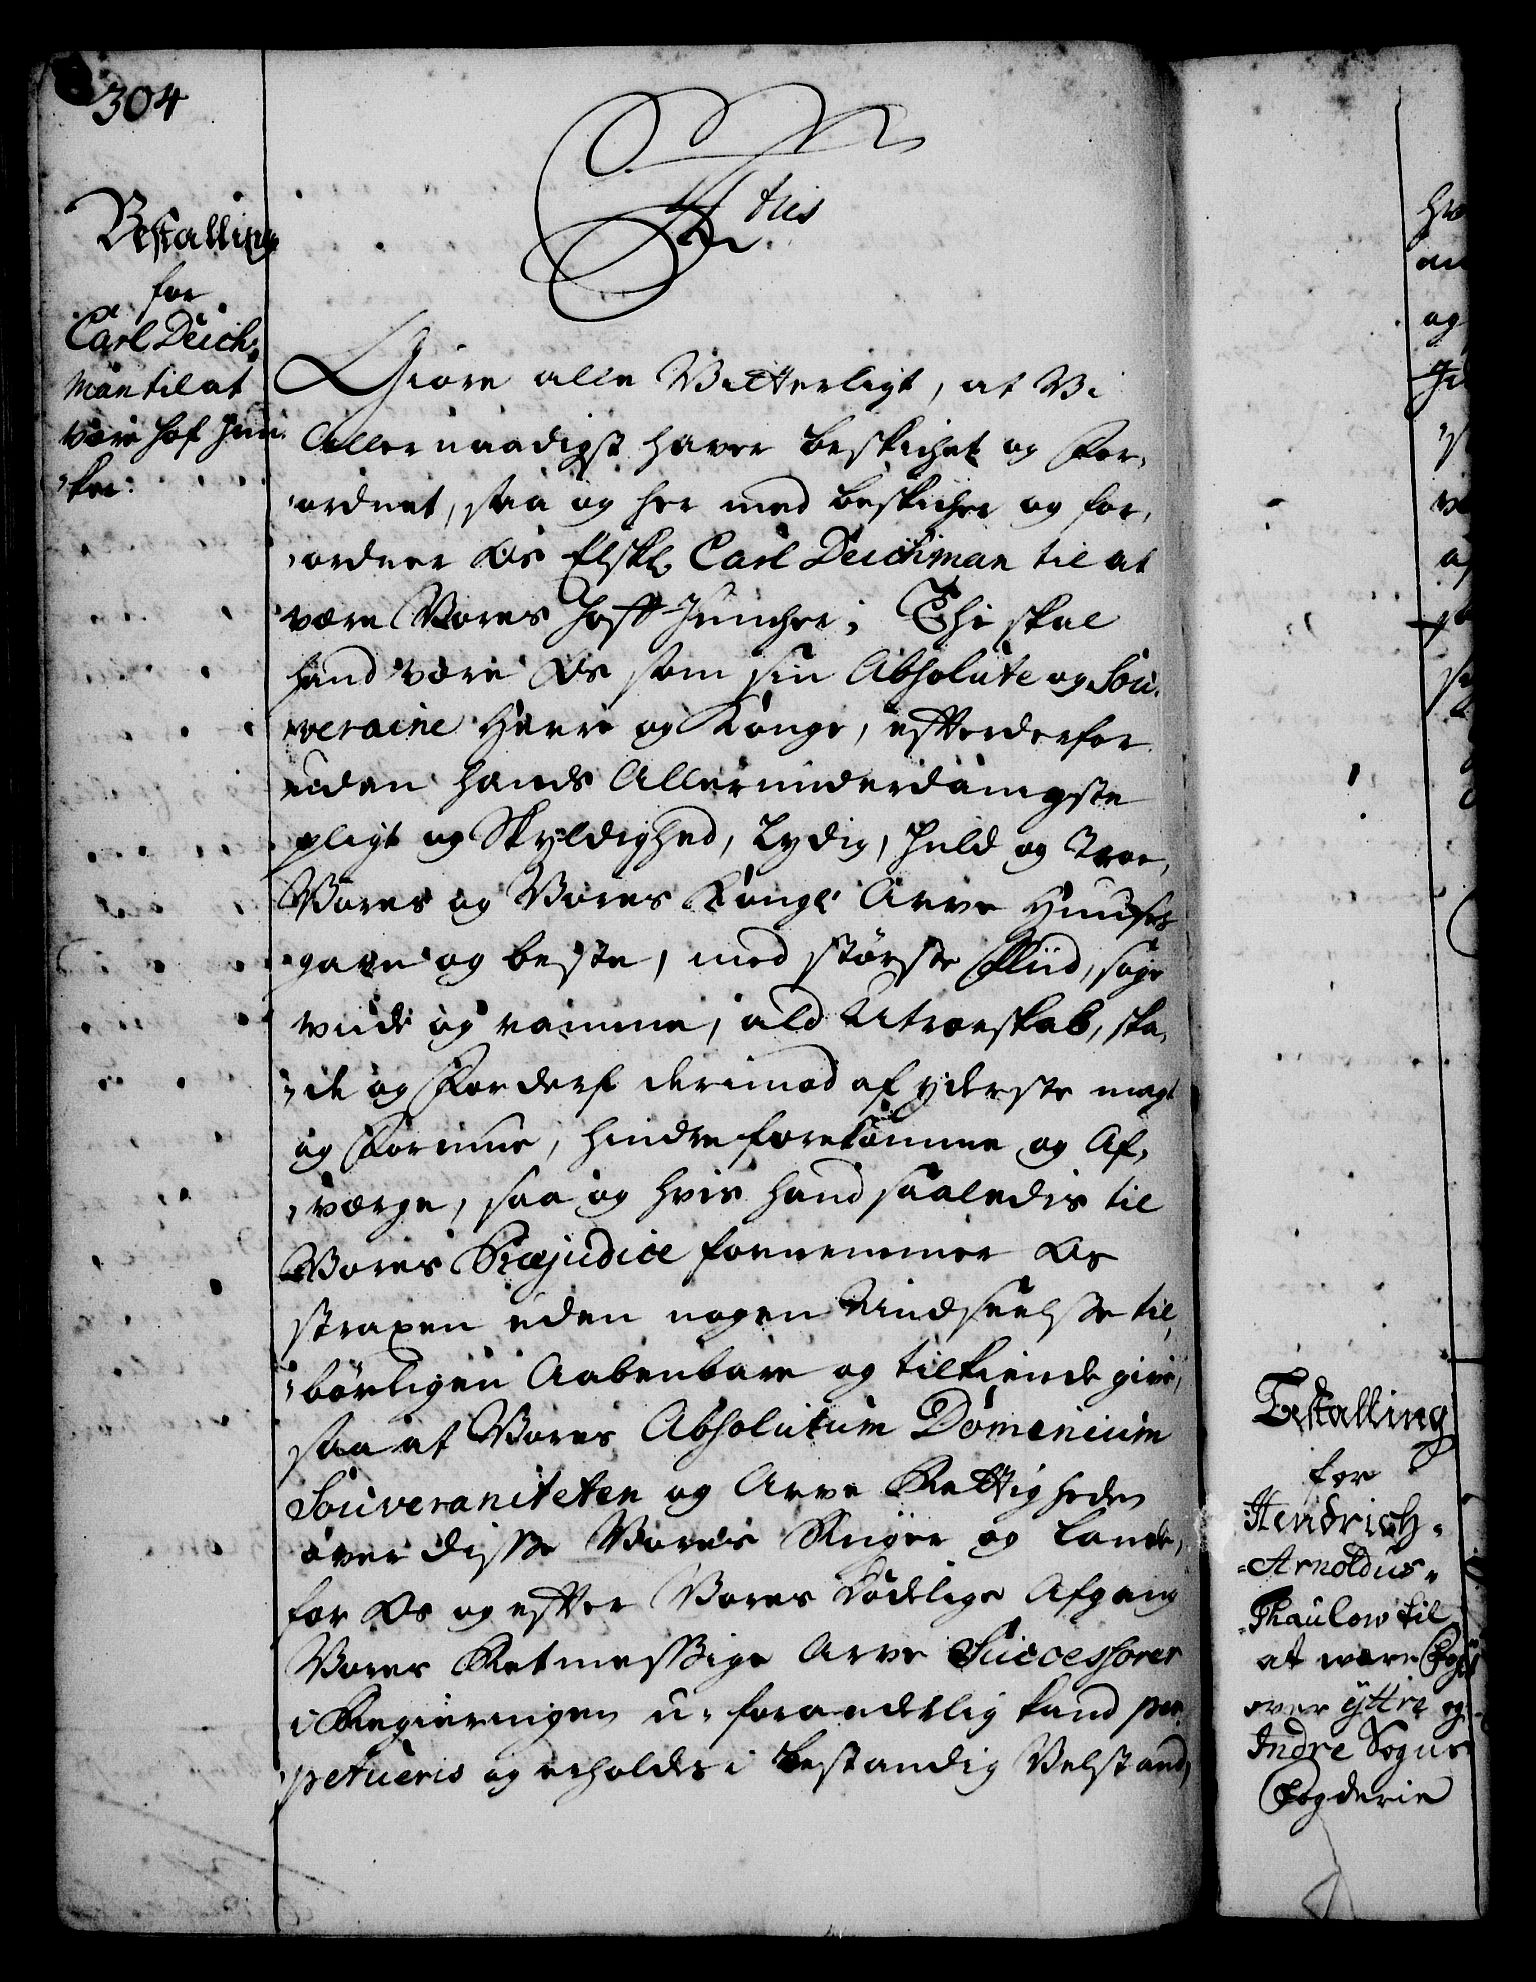 304
Bestalling
for
Carl Deich,
man til at
være Hof Jun,
,ker:
F 4tus
Giøre alle Vitterligt, at Vi
Allernaadigst haver beskichet og For,
,ordnet, saa og her med beskicher og for,
,ordner Os Elskl. Carl Deichman til at
være Vores Hoff Juncher; Thi skal
hand være Os som sin Absolute og Sou,
,veraine Herre og Konge, efterderfor
uden hands Allerunderdanigste
pligt og Skyldighed, Lydig, Huld og Troe,
Vores og Vores Kongl. Arve Huuses
gavn og beste, med største Fliid, søge
viide og ramme, ald Utroeskab, ska,
,de og Forderf derimod af yderste magt
og Formue, hindre forekomme og Af,
,værge, saa og hvis hand saaledis til
Vores Præjudice fornemmer Os
straxen uden nogen Undseelse til,
,børligen Aabenbare og tilkiende give,
saa at Vores Absolutum Domenium
Souveraniteten og Arve Rettigheden
over disse Vores Riiger og Lande,
for Os og efter Vores Dødelige Afgang
Vores Retmessige Arve Successorer
i Regieringen u-foranderlig kand per,
,petueris og erholdes i bestandig Velstand,
Bestalling
for
Hendrich
Arnoldus
Thaulow til
at være Fogt
over Ÿttre og
Indre Sogns
Fogderie